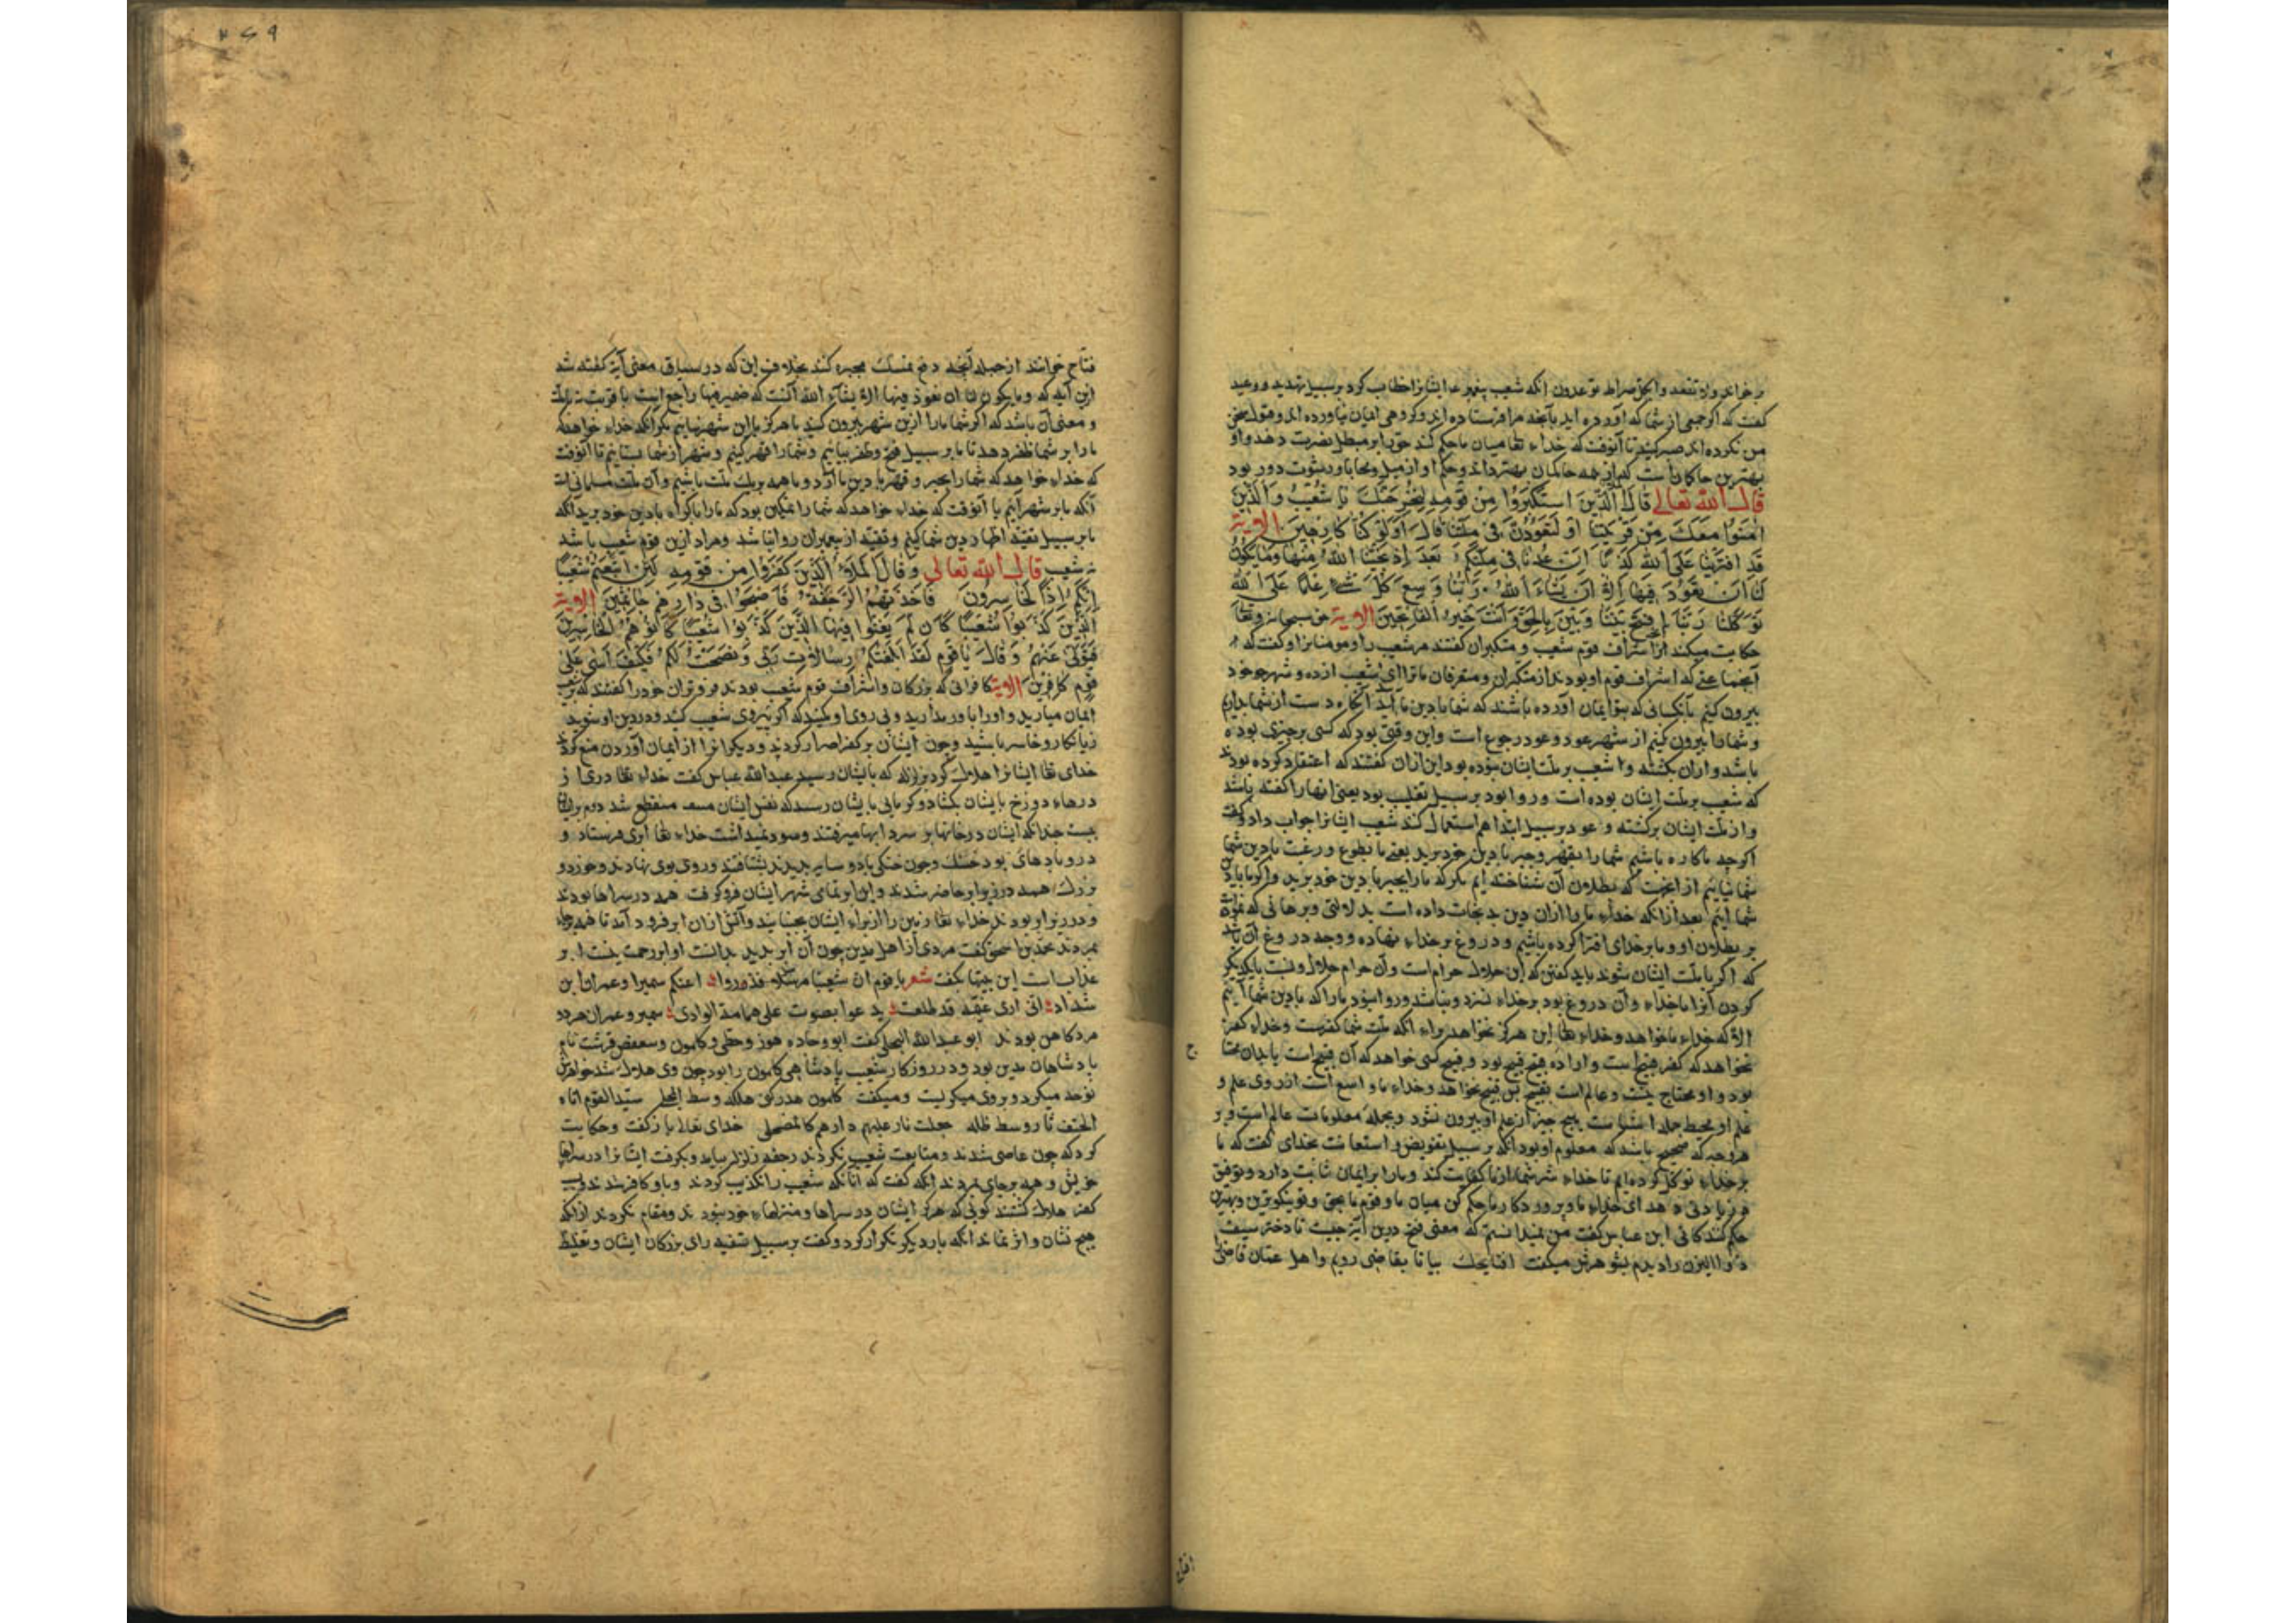 بر خواند ولا تقعدوا بکل صراط توعدون انکه شعیب پیغمبر ع ایشانرا خطاب کرد بر سبیل تهدید و وعید
کفت که اکر جمعی از شما که آورده اید بآنجه مرا فرستاده اند و کروهی ایمان نیاورده اند و قبول سخن
من نکرده اند صبر کنید تا آنوقت که خداء تعا میان ما حکم کند محق را بر مبطل نصرت دهد و او
بهترین حاکمان است که از همه حاکمان بهتر داند و حکم او از میل و محابا و رشوت دور بود
قال الله تعالی قَالَ الَّذِينَ اسْتَكْبَرُوا مِنْ قَوْمِهِ لَنُخْرِجَنَّكَ يَا شُعَيْبُ وَالَّذِينَ
آمَنُوا مَعَكَ مِنْ قَرْيَتِنَا أَوْ لَتَعُودُنَّ فِي مِلَّتِنَا قَالَ أَوَلَوْ كُنَّا كَارِهِينَ الایة
قَدِ افْتَرَيْنَا عَلَى اللهِ كَذِبًا إِنْ عُدْنَا فِي مِلَّتِكُمْ بَعْدَ إِذْ نَجَّيْنَا اللهُ مِنْهَا وَمَا يَكُونُ
لَنَا أَنْ نَعُودَ فِيهَا إِلَّا أَنْ يَشَاءَ اللهُ رَبُّنَا وَسِعَ كُلَّ شَيْءٍ عِلْمًا عَلَى اللهِ
تَوَكَّلْنَا رَبَّنَا افْتَحْ بَيْنَنَا وَبَيْنَ بِالْحَقِّ وَأَنْتَ خَيْرُ الْفَاتِحِينَ الایة حق سبحانه و تعا
حکایت میکند از اشراف قوم شعیب و متکبران کفتند مر شعیب را و مومنانرا و کفت که
آنجماعتی که اشراف قوم او بودند از متکبران و متعرفان ما ترا ای شعیب از ده و شهر خود
بیرون کنیم با کسانی که بتو ایمان آورده باشند که شما با دین ما آیید آنکاه دست از شما بداریم
و شما را بیرون کنیم از شهر عود و عود رجوع است و این وقتی بود که کسی بر جیزی بوده
باشد و از ان بکشته و شعیب بر ملت ایشان نبوده بود این از ان کفتند که اعتقاد کرده بودند
که شعیب بر ملت ایشان بوده است و روا بود بر سبیل تغلیب بود یعنی انها را کفته باشد
و از ملت ایشان برکشته و عود بر سبیل ابتدا هم استعمال کنند شعیب ایشانرا جواب داد و کفت
اکرجه ما کاره باشیم شما را بقهر و جبر با دین خود برید یعنی ما بطوع و رغبت با دین شما
شما نیاییم از انجهت که بطلان آن شناخته ایم مکر که ما را بجبر با دین خود برید و اکر ما با دین
شما آییم بعد از انکه خداء ما را از ان دین بد نجات داده است بدلالتی و برهانی که نموده
بر بطلان او و ما بر خدای افترا کرده باشیم و دروغ بر خداء نهاده و وجه دروغ آن باشد
که اکر با ملت ایشان شوند باید کفتن که این حلال حرام است و آن حرام حلال و نسبت با یکدیکر
کردن آنرا با خداء و آن دروغ بود بر خداء نسزد و نباشد و روا نبود ما را که با دین شما آییم
الا که خداء ما خواهد و خداء تعا این هرکز نخواهد براء انکه ملت شما کفرست و خداء کفر
نخواهد که کفر قبیح است و اراده قبیح قبیح بود و قبیح کسی خواهد که آن قبیح است یا بدان محتاج
بود و او محتاج نیست و عالم است بقبیح پس قبیح نخواهد و خداء ما واسع است از روی علم و
علم او محیط بجمله اشیاست هیج جیز از علم او بیرون نشود و بجمله معلومات عالم است و بر
هر وجه که صحیح باشد که معلوم او بود انکه بر سبیل تفویض و استعانت بخدای کفت که ما
بر خداء توکل کرده ایم تا خداء شر شما از ما کفایت کند و ما را بر ایمان ثابت دارد و توفیق
و زیادتی دهد ای خداء ما و پروردکار ما حکم کن میان ما و قوم ما بحق و تو نیکوترین و بهترین
حکم کنندکانی ابن عباس کفت من نمیدانستم که معنی فتح درین آیة جیست تا دختر سیف
ذو الیزن را دیدم بشوهرش میکفت افاتحک بیا تا بقاضی رویم و اهل عمان قاضی را
فتاح خوانند از جمله آنجه دفع تمسک مجبره کند بخلاف این که در سیاق معنی آیة کفته شد
ازین آیه که و ما یکون لنا ان نعود فیها الا ان یشاء الله آنست که ضمیر فیها راجع است با قریت نه ملت
و معنی آن باشد که اکر شما ما را ازین شهر بیرون کنید ما هرکز با این شهر نیاییم مکر انکه خداء خواهد که
ما را بر شما ظفر دهد تا ما بر سبیل فتح و ظفر بیاییم و شما را قهر کنیم و شهر از شما بستانیم تا آنوقت
که خداء خواهد که شما را بجبر و قهر با دین ما آرد و ما همه بر یک ملت باشیم و آن ملت مسلمانی است
آنکه ما بر شهر آییم یا آنوقت که خداء خواهد که شما را تمکین بود که ما را باکراه با دین خود برید انکه
ما بر سبیل تقیه اظهار دین شما کنیم و تقیه از پیغمبران روا نباشد و مراد ازین قوم شعیب باشد
نه شعیب قال الله تعالی وَقَالَ الْمَلَأُ الَّذِينَ كَفَرُوا مِنْ قَوْمِهِ لَئِنِ اتَّبَعْتُمْ شُعَيْبًا
إِنَّكُمْ إِذًا لَخَاسِرُونَ فَأَخَذَتْهُمُ الرَّجْفَةُ فَأَصْبَحُوا فِي دَارِهِمْ جَاثِمِينَ الایة
الَّذِينَ كَذَّبُوا شُعَيْبًا كَأَنْ لَمْ يَغْنَوْا فِيهَا الَّذِينَ كَذَّبُوا شُعَيْبًا كَانُوا هُمُ الْخَاسِرِينَ
فَتَوَلَّى عَنْهُمْ وَقَالَ يَا قَوْمِ لَقَدْ أَبْلَغْتُكُمْ رِسَالَاتِ رَبِّي وَنَصَحْتُ لَكُمْ فَكَيْفَ آسَى عَلَى
قَوْمٍ كَافِرِينَ الایة کافرانی که بزرکان و اشراف قوم شعیب بودند فروتران خود را کفتند که بر شعیب
ایمان میارید و او را باور مدارید و پی روی او مکنید که اکر پیروی شعیب کنید و در دین او شوید
زیانکار و خاسر باشید و جون ایشان بر کفر اصرار کردند و دیکرانرا از ایمان آوردن منع کردند
خدای تعا ایشانرا هلاک کرد بزلزله که بایشان رسید عبدالله عباس کفت خداء تعا دری از
درهاء دوزخ بایشان بکشاد و کرمایی بایشان رسید که نفس ایشان منقطع شد
جندانکه ایشان در خانها و سردابها میرفتند و سود نمیداشت خداء تعا ابری فرستاد و
درو بادهای بود خنک و جون خنکی باد و سایه بدیدند بشتافتند و روی بوی نهادند و خرد و
بزرک همه در زیر او حاضر شدند و این ابر تمامی شهر ایشان فرو کرفت همه در سراها بودند
و در زیر او بودند خداء تعا زمین را از براء ایشان بجنبانید و آتش از ان ابر فرود آمد تا همه بجاء
بمردند محمد بن اسحق کفت مردی از اهل مدین جون آن ابر بدید بدانست او ابر رحمت نیست ابر
عذاب است این بیتها بکفت شعر یا قوم ان شعیبا مرسل فذروا عنکم سمیرا و عمران ابن
شداد انی اری غیمة قد طلعت یدعوا بصوت علی هامة الوادی سمیر و عمران هر دو
مرد کاهن بودند ابو عبدالله البجلی کفت ابو وجاد هوز و حطی و کلمون و سعفص قرشت نام
پادشاهان مدین بود و در روزکار شعیب پادشاهی کلمون را بود جون وی هلاک شد خواهرش
نوحه میکرد و بروی میکریست و میکفت کلمون هد رکنی هلکه وسط المحله سید القوم اتاه
الحتف نارا وسط ظله جعلت نار علیهم دارهم کالمضمحله خدای تعالی باز کفت و حکایت
کرد که جون عاصی شدند و متابعت شعیب نکردند رجفه و زلزله بیامد و بکرفت ایشانرا در سراها
خویش و همه بر جای بمردند انکه کفت که آنانکه شعیب را تکذیب کردند و باو کافر شدند
کفر هلاک کشتند کوئی که هرکز ایشان در سراها و منزلهاء خود نبودند و مقام نکردند از انکه
هیج نشان و اثر نماند انکه بار دیکر تکرار کرد و کفت بر سبیل تسفیه رای بزرکان ایشان و تغلیظ